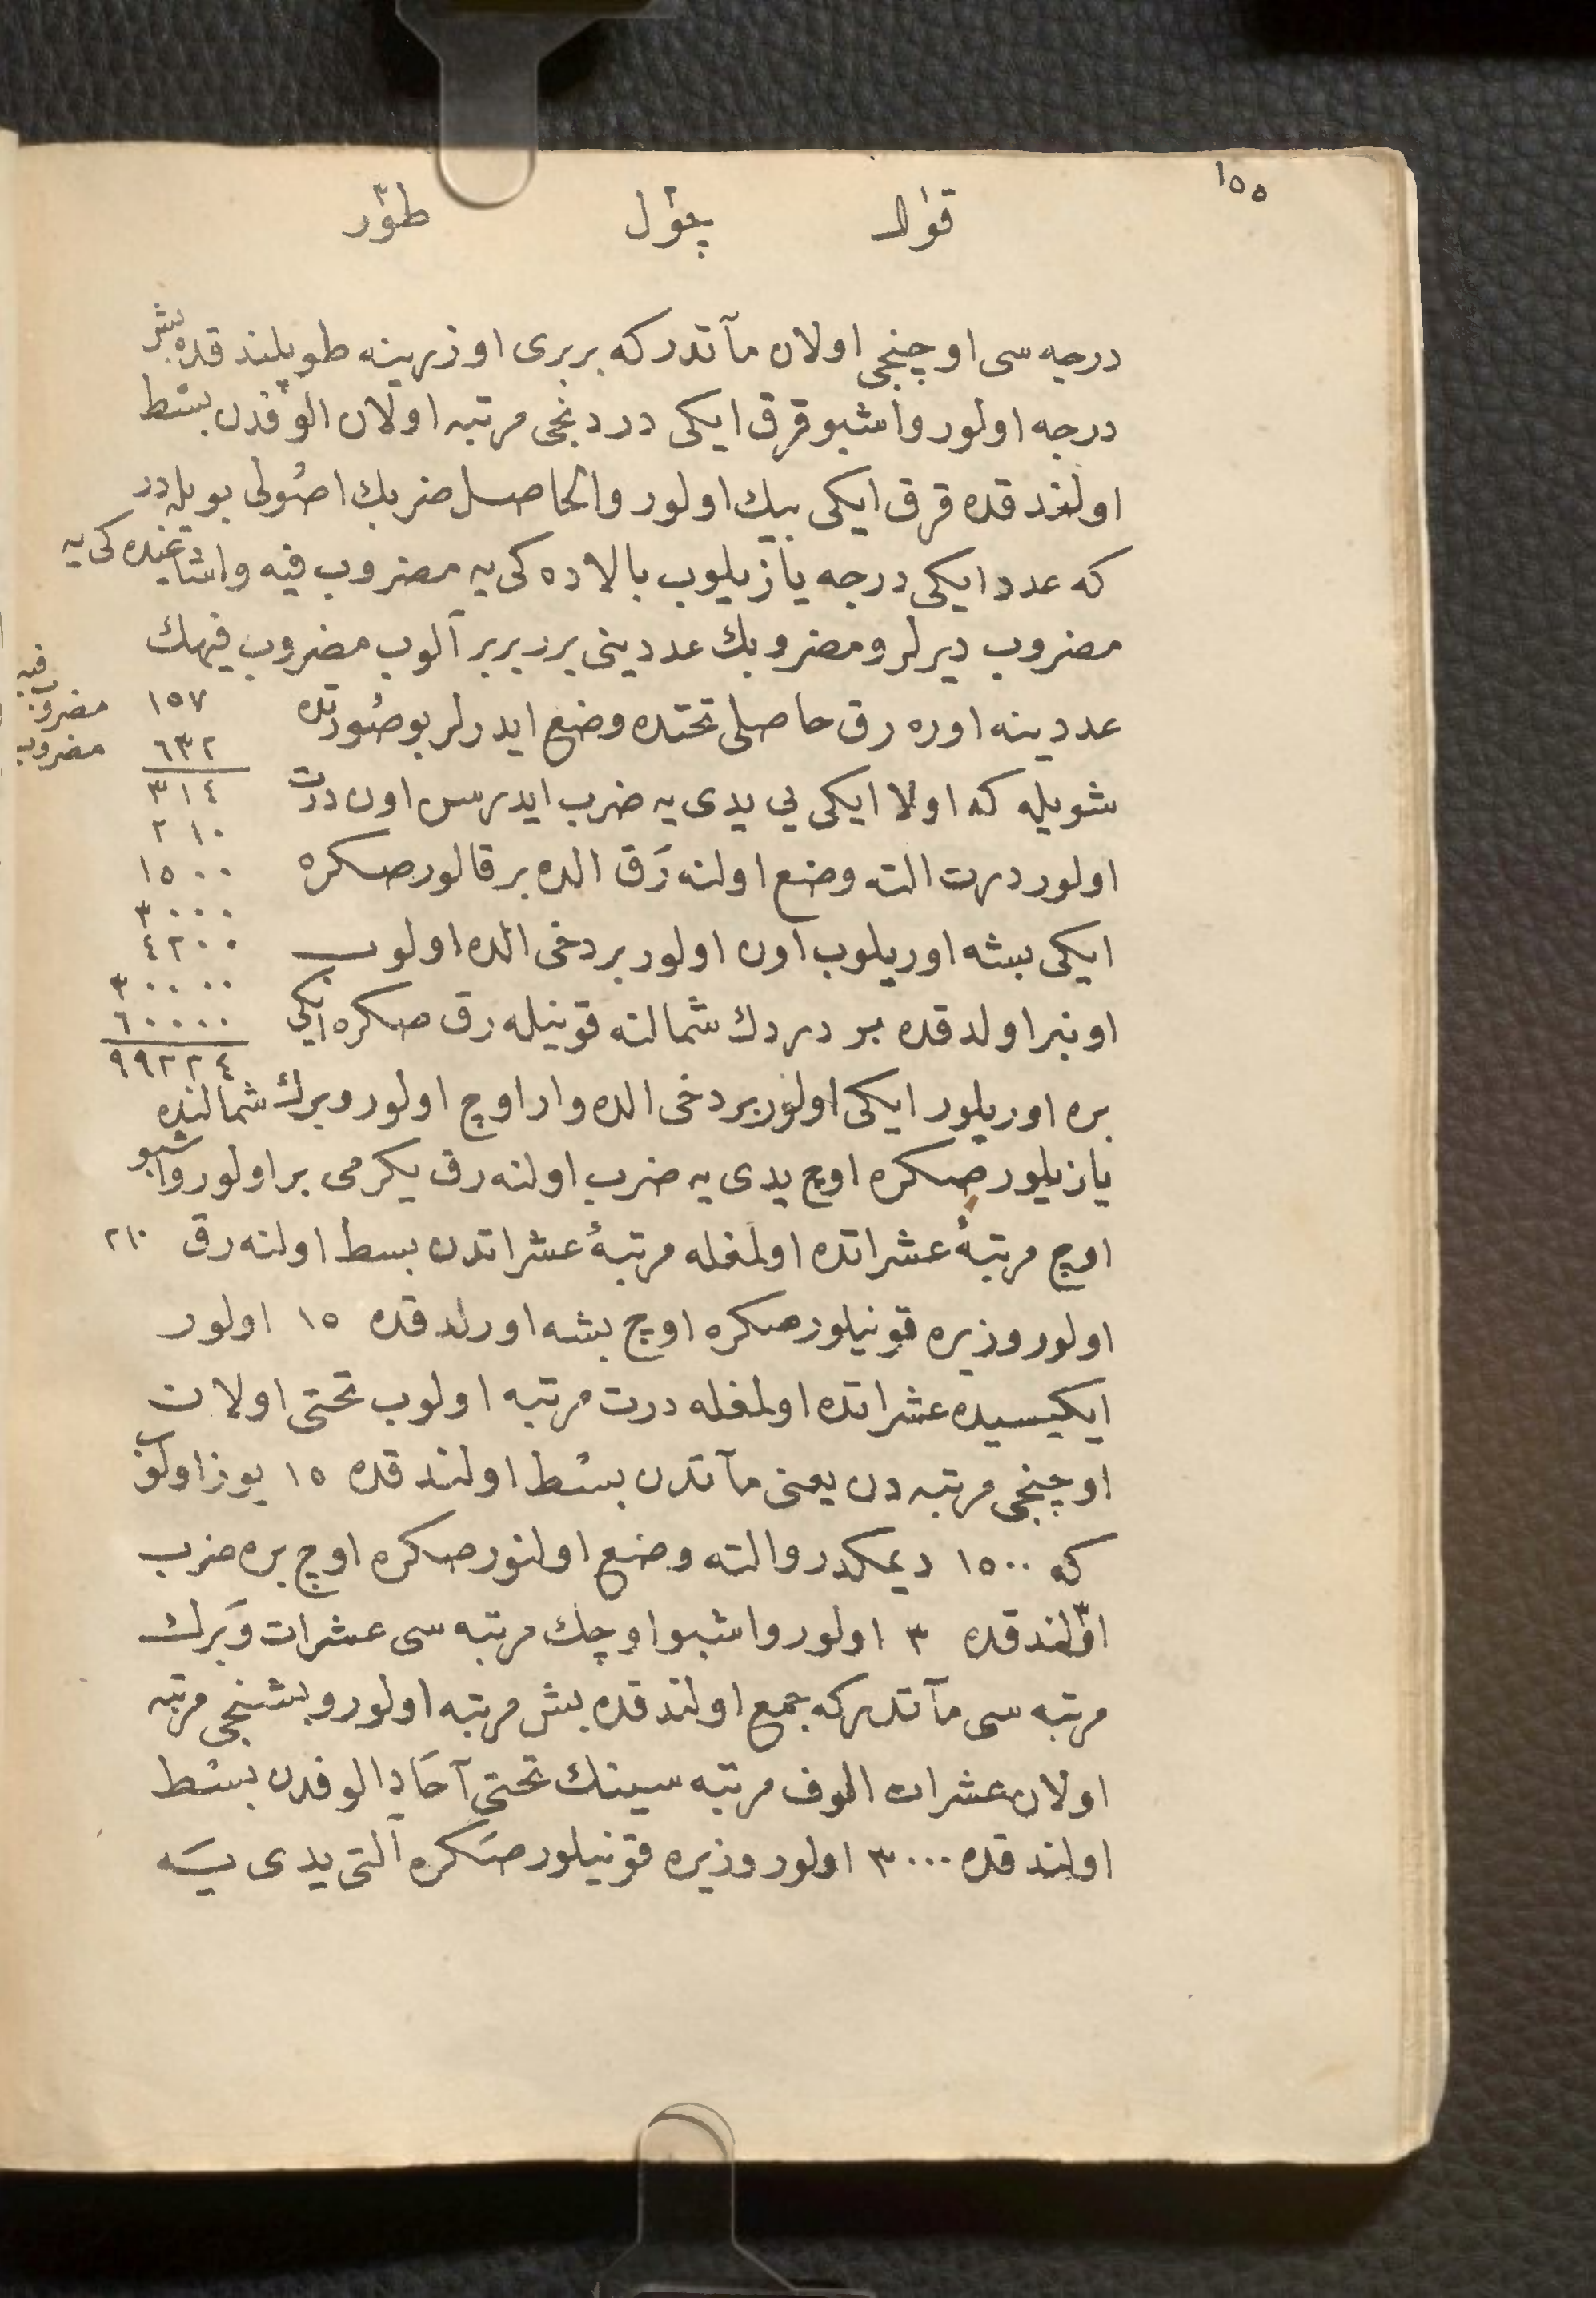 ١٥٥
قوٰال چوٰل طوٰر
درجه سی اوچنجی اولان مآتدر که بربری اوزرینه طوپلندقده بش
درجه اولور واشبو قرق ایکی دردنجی مرتبه اولان الوفدن بسط
اولندقده قرق ایکی بیك اولور والحاصل ضربك اصولی بویله در
که عدد ایکی درجه یازیلوب بالاده کی یه مضروب فیه واشاغنده کی یه
مضروب دیرلر ومضروبك عددینی برر برر آلوب مضروب فیهك
عددینه اوره رق حاصلی تحتده وضع ایدرلر بو صورتده
١٥٧ مضروب فیه
٦٣٢ مضروب
شویله که اولا ایکی یی یدی یه ضرب ایدرسن اون درت
٣١٤
٢١٠
اولور درت التنه وضع اولنه رَق الده بر قالور صکره
١٥٠٠
٣٠٠٠
ایکی بشه اوریلوب اون اولور بر دخی الده اولوب
٤٢٠٠
٣٠٠٠٠
اونبر اولدقده بر دردك شمالنه قونیله رق صکره ایکی
٦٠٠٠٠
٩٩٢٢٤
بره اوریلور ایکی اولور بر دخی الده وار اوچ اولور وبرك شمالنده
یازیلور صکره اوچ یدی یه ضرب اولنه رق یکرمی بر اولور واشبو
اوچ مرتبهٔ عشراتده اولمغله مرتبهٔ عشراتدن بسط اولنه رق ٢١٠
اولور وزیره قونیلور صکره اوچ بشه اورلدقده ١٥ اولور
ایکیسیده عشراتده اولمغله درت مرتبه اولوب تحتی اولان
اوچنجی مرتبه دن یعنی مآتدن بسط اولندقده ١٥ یوز اولوب
که ١٥٠٠ دیمکدر والتنه وضع اولنور صکره اوچ بره ضرب
اولندقده ٣ اولور واشبو اوچك مرتبه سی عشرات وَبرك
مرتبه سی مآتدر که جمع اولندقده بش مرتبه اولور وبشنجی مرتبه
اولان عشرات الوف مرتبه سینك تحتی آحاد الوفدن بسط
اولندقده ٣٠٠٠ اولور وزیره قونیلور صکره آلتی یدی یَه